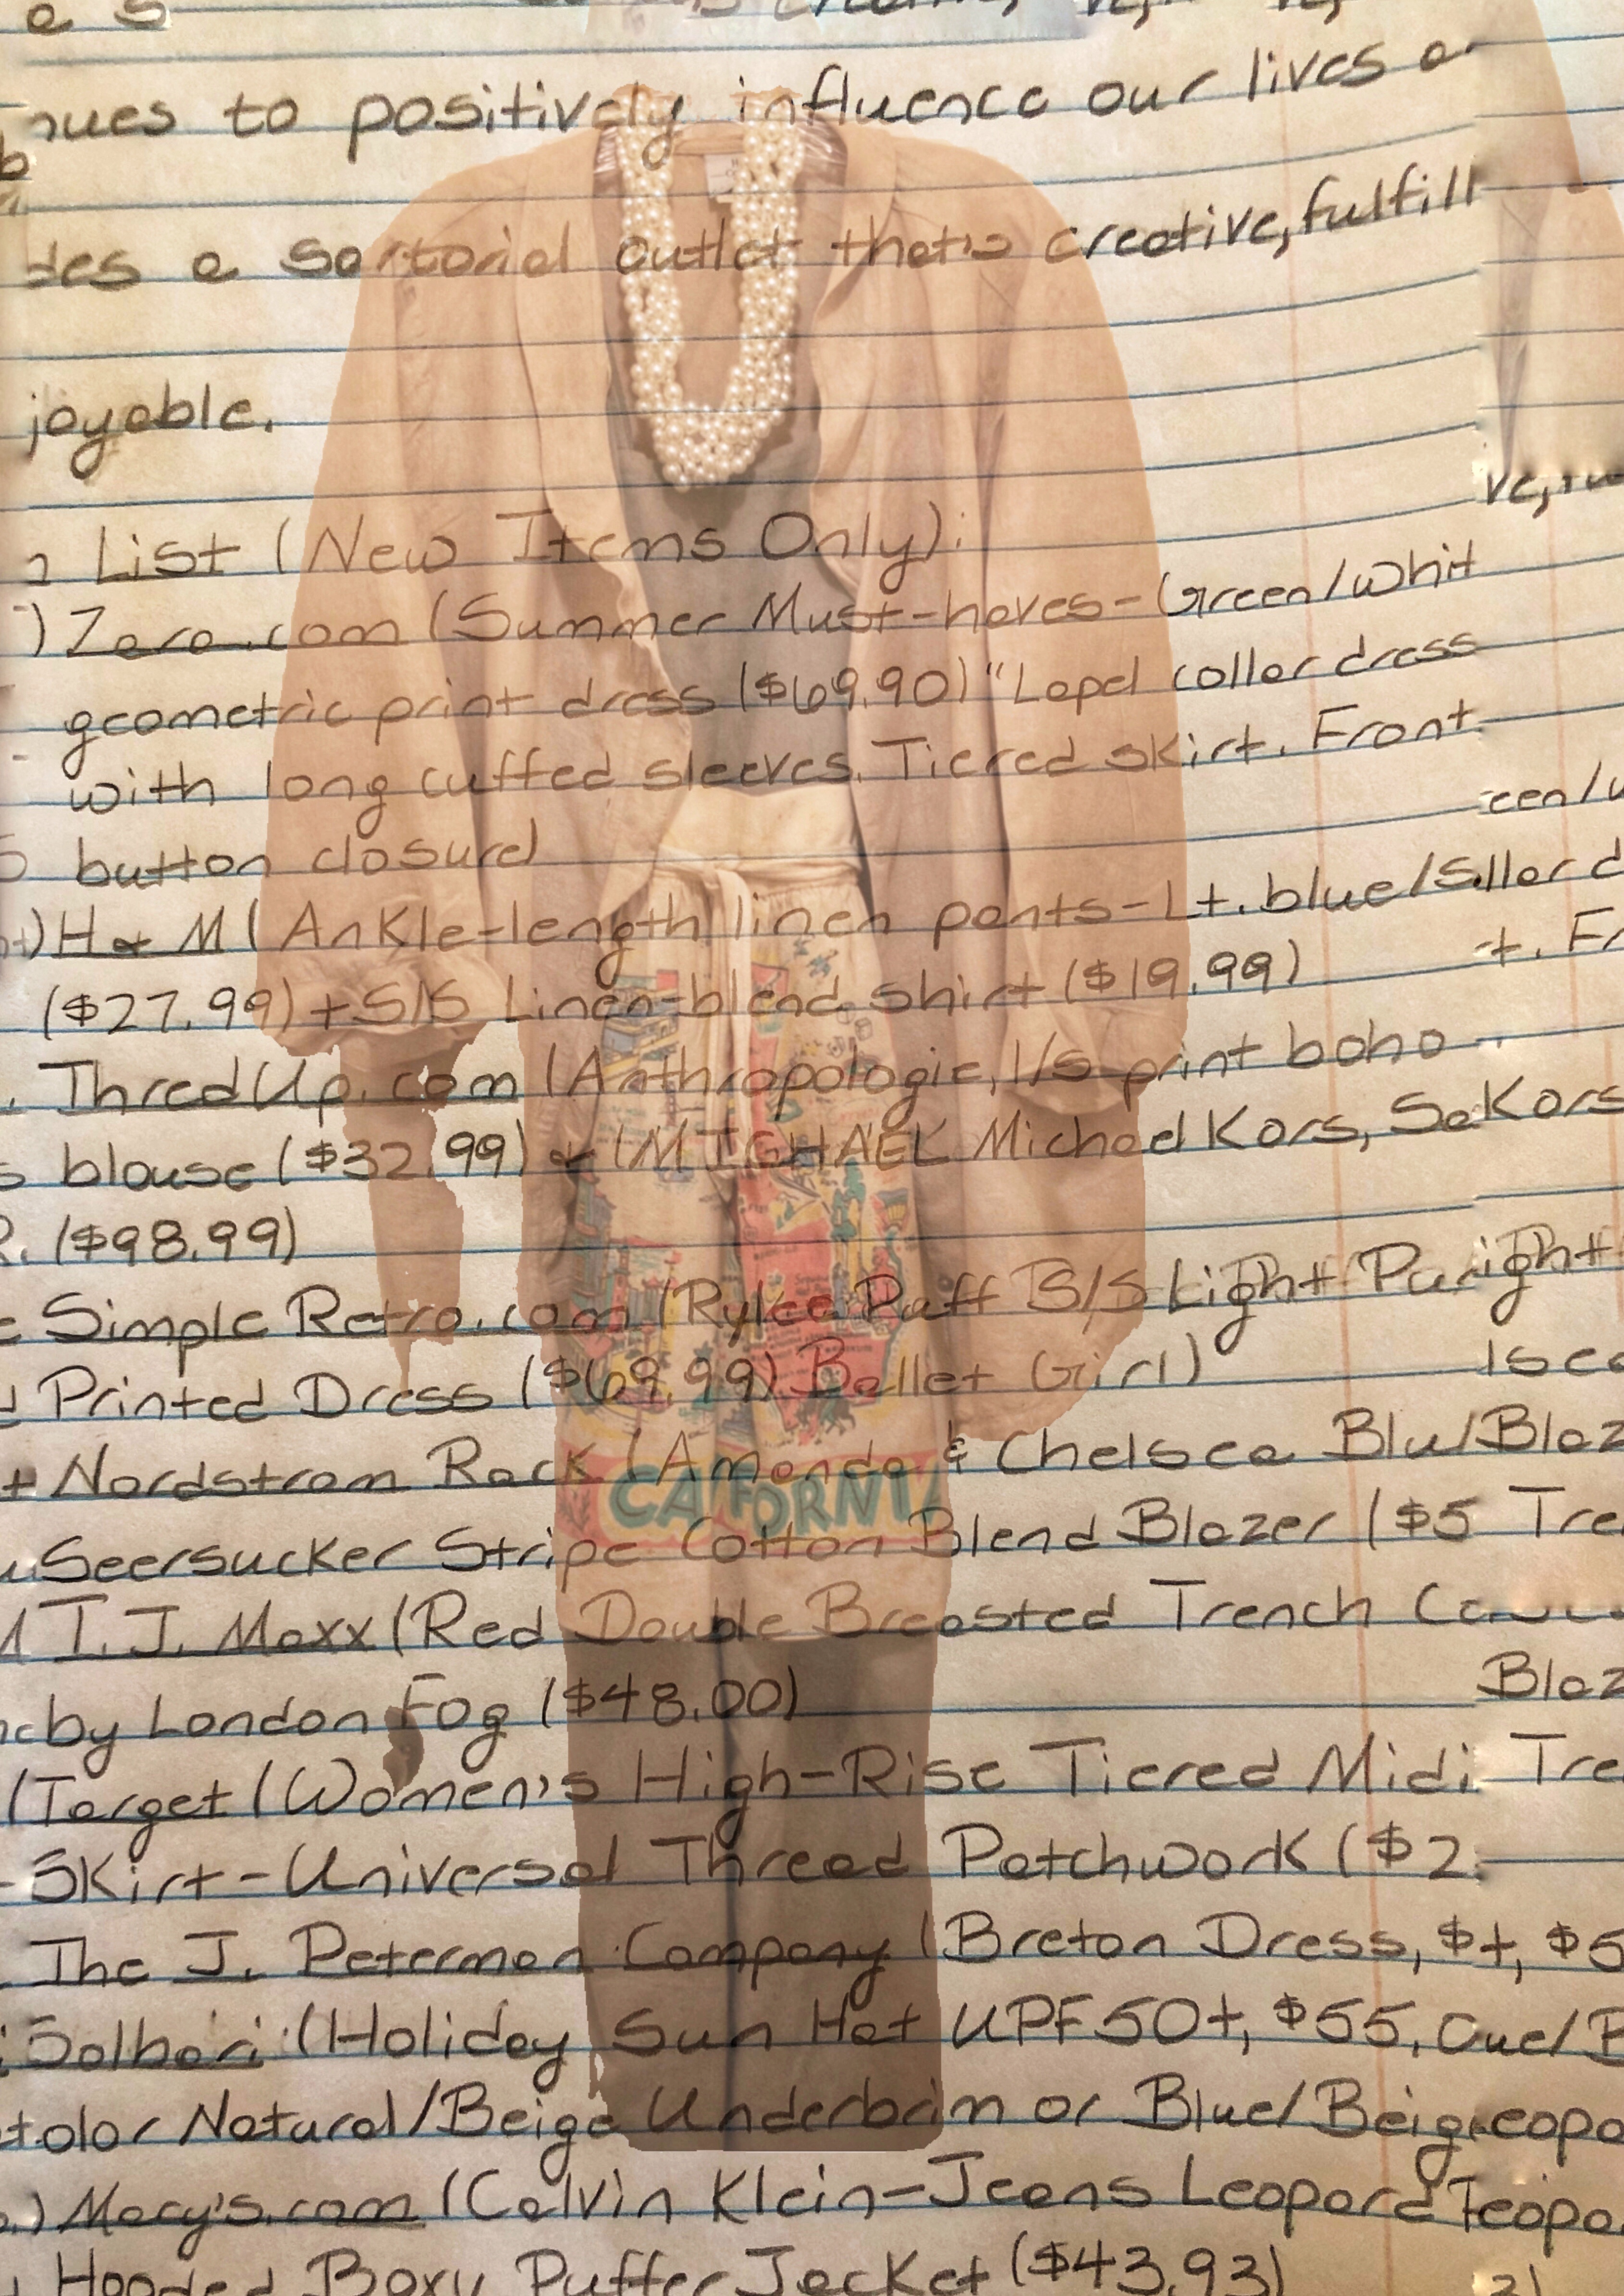 nues to positively influence our lives a
des a sartorial outlet that's creative, fulfill
joyable.
List (New Items Only):
) Zara.com (Summer Must-haves-Green/whit
geometric print dress ($69.90) "Lapel collar dress
with long cuffed sleeves. Tiered skirt. Front
button closure)
H & M (Ankle-length linen pants-Lt. blue/S
($27.99) + S/S Linen-blend shirt ($19.99)
ThredUp.com (Anthropologie, l/s print boho
blouse ($32.99) & (MICHAEL Michael Kors, S
($98.99)
Simple Retro.com (Rylee Puff S/S Light Pu
Printed Dress ($69.99) Ballet Girl)
Nordstrom Rack (Amanda & Chelsea Blu/Blaz
Seersucker Stripe Cotton Blend Blazer ($5 Tre
CALIFORNIA
T.J. Maxx (Red Double Breasted Trench
by London Fog ($48.00)
Blaz
(Target (Women's High-Rise Tiered Midi Tre
Skirt-Universal Thread Patchwork ($2
The J. Peterman Company (Breton Dress, $
Solbari (Holiday Sun Hat UPF 50+, $55,
Natural/Beige Underbrim or Blue/Beig
.) Macy's.com (Calvin Klein-Jeans Leopard
Hooded Boxy Puffer Jacket ($43.93)